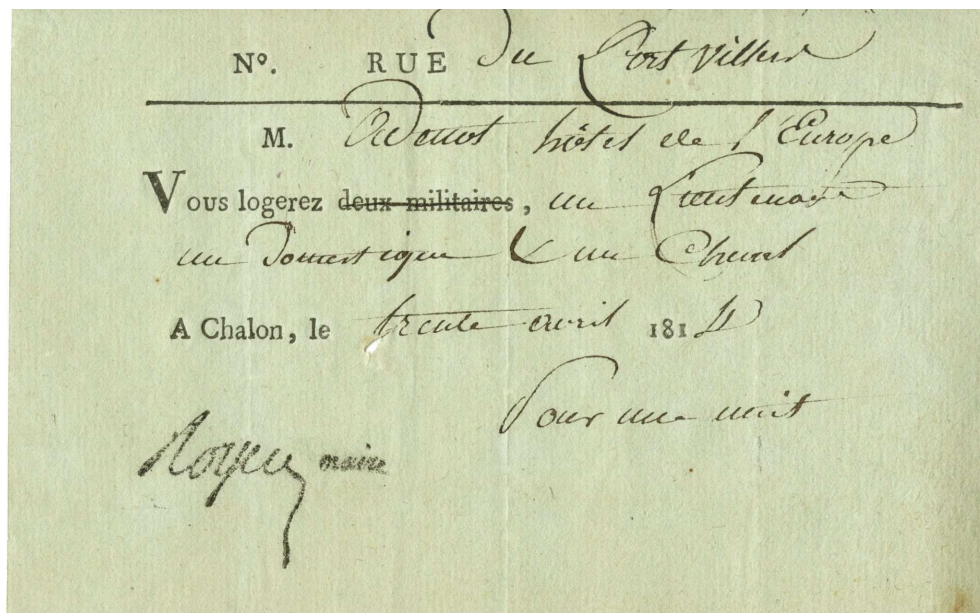 N°. RUE du Port Villiers
M. hôtel de l'Europe
Vous logerez deux militaires, un Lieutenant
un domestique & un Cheval
A Chalon, le trente avril 1814
Pour une nuit
Royer maire